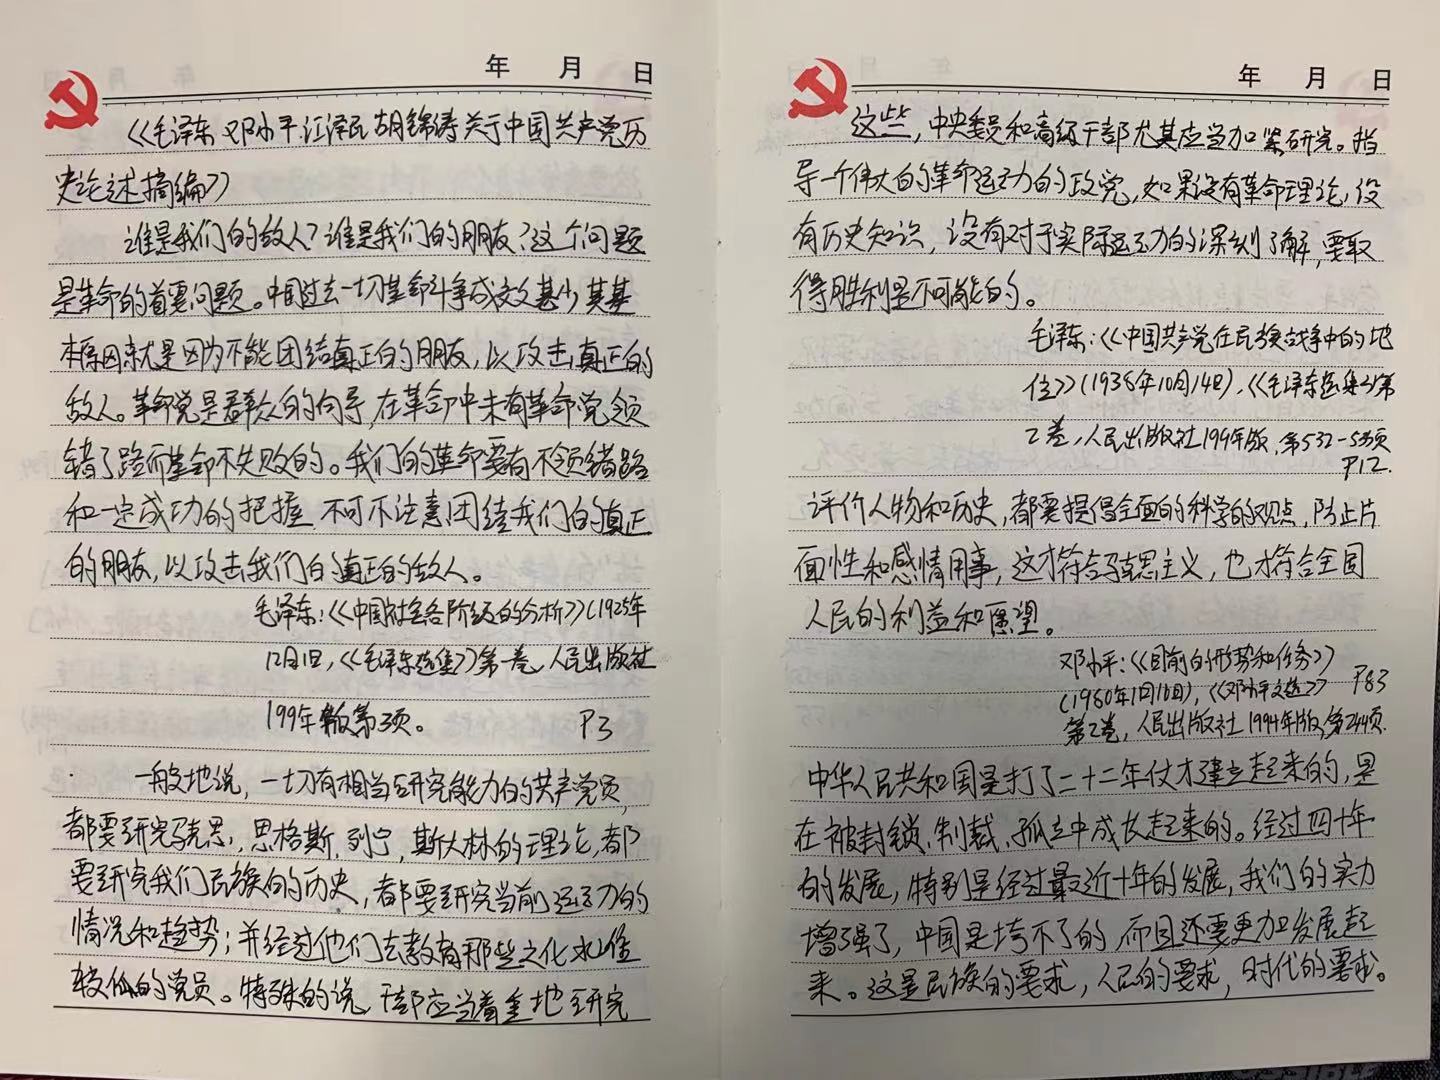 年 月 日
《毛泽东 邓小平 江泽民 胡锦涛关于中国共产党历
史论述摘编》
谁是我们的敌人？谁是我们的朋友？这个问题
是革命的首要问题。中国过去一切革命斗争成效甚少，其基
本原因就是因为不能团结真正的朋友，以攻击真正的
敌人。革命党是群众的向导，在革命中未有革命党领
错了路而革命不失败的。我们的革命要有不领错路
和一定成功的把握，不可不注意团结我们的真正
的朋友，以攻击我们的真正的敌人。
毛泽东：《中国社会各阶级的分析》（1925年
12月1日，《毛泽东选集》第一卷，人民出版社
199年版第3页。 P3
一般地说，一切有相当研究能力的共产党员，
都要研究马克思，恩格斯，列宁，斯大林的理论，都
要研究我们民族的历史，都要研究当前运动的
情况和趋势；并经过他们去教育那些文化水准
较低的党员。特殊的说，干部应当着重地研究
年 月 日
这些，中央委员和高级干部尤其应当加紧研究。指
导一个伟大的革命运动的政党，如果没有革命理论，没
有历史知识，没有对于实际运动的深刻了解，要取
得胜利是不可能的。
毛泽东：《中国共产党在民族战争中的地
位》（1938年10月14日），《毛泽东选集》第
2卷，人民出版社199年版，第532-533页
P12.
评价人物和历史，都要提倡全面的科学的观点，防止片
面性和感情用事，这才符合马克思主义，也才符合全国
人民的利益和愿望。
邓小平：《目前的形势和任务》
（1980年1月16日），《邓小平文选》 P83
第2卷，人民出版社1994年版，第244页.
中华人民共和国是打了二十二年仗才建立起来的，是
在被封锁、制裁、孤立中成长起来的。经过四十年
的发展，特别是经过最近十年的发展，我们的实力
增强了，中国是垮不了的，而且还要更加发展起
来。这是民族的要求，人民的要求，时代的要求。